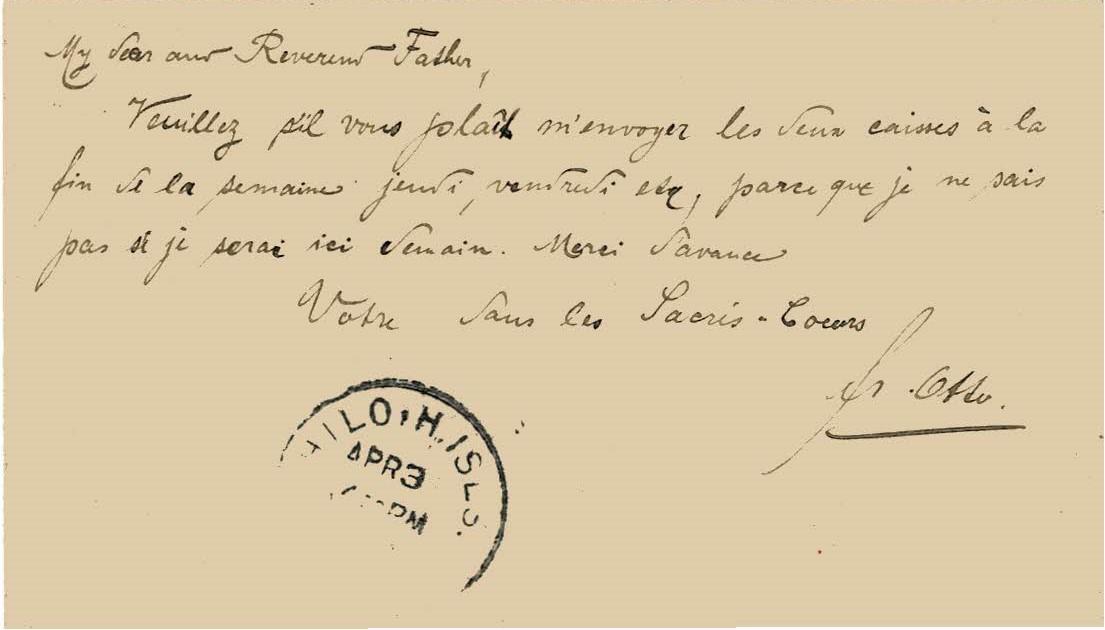 My dear and Reverend Father,
Veuillez s'il vous plaît m'envoyer les deux caisses à la
fin de la semaine jeudi, vendredi etc, parce que je ne sais
pas si je serai ici demain. Merci d'avance
Votre dans les Sacrés-Coeurs
fr. Otto.
HILO, H. ISLS.
APR 3
PM